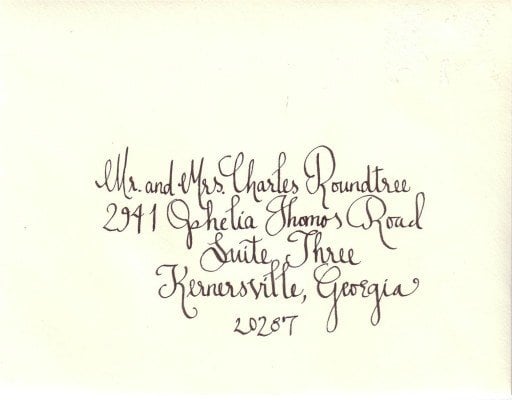 Mr. and Mrs. Charles Roundtree
2941 Ophelia Thomas Road
Suite Three
Kernersville, Georgia
20287